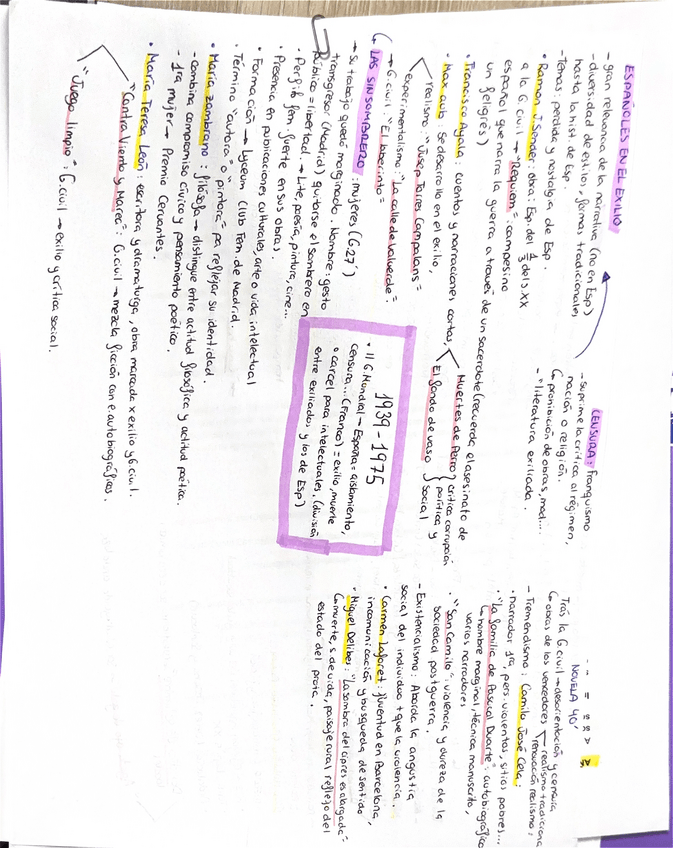 ESPAÑOLES EN EL EXILIO
- gran relevancia de la narrativa (no en Esp)
- diversidad de estilos, formas tradicionales
hasta la hist. de Esp.
- Temas: perdida y nostalgia de Esp.
• Ramon J. Sender: obra: Esp. del 1/3 del s. XX
a la G. civil → "Requiem = campesino
español que narra la guerra a través de un sacerdote (recuerda el asesinato de
un feligrés)
• Francisco Ayala: cuentos y narraciones cortas,
Muertes de Perro
El fondo de vaso
} crítica corrupción
política y
social
• Max aub: se desarrollo en el exilio,
realismo: "Jusep Torres Campalans"=
experimentalismo: "La calle de Valverde"=
→ G. civil: "El laberinto"=
LAS SINSOMBRERO: mujeres (G.27')
→ Su trabajo quedó marginado. Nombre: gesto
transgresor (Madrid) quitarse el sombrero en
público = libertad. → Lite, poesía, pintura, cine...
• Perfil fem. fuerte en sus obras.
• Presencia en publicaciones culturales, arte o vida intelectual
• Formación → Lyceum Club Fem. de Madrid.
• Término "autora" o "pintora" = pa reflejar su identidad.
• María Zambrano: filósofa → distingue entre actitud filosófica y actitud poética.
- combina compromiso cívico y pensamiento poético.
- 1ra mujer → Premio Cervantes.
• María Teresa León: escritora y dramaturga, obra marcada x exilio y G. civil.
"Contra Viento y Marea": G. civil → mezcla ficción con e. autobiográficos.
"Juego limpio": G. civil → exilio y crítica social.
CENSURA: Franquismo
- suprime la crítica al régimen,
nación o religión.
↳ prohibición de obras, mod....
- "literatura exiliada.
1939-1975
• II G. Mundial → España = aislamiento,
censura... (Franco) = exilio, muerte
o carcel para intelectuales. (división
entre exiliados y los de Esp)
NOVELA 40'
Tras la G. civil → desorientación y censura
↳ obras de los vencedores
realismo tradiciona
renovación realismo:
- Tremendismo: Camilo José Cela:
• narrador 1ª pers. violentas, sitios pobres...
• "La familia de Pascual Duarte": autobiográfico
↳ hombre marginal, técnica manuscrito,
varios narradores
• "San Camilo": violencia y dureza de la
sociedad postguerra.
- Existencialismo: Aborda la angustia
social del individuo + que la violencia.
• Carmen Laforet: juventud en Barcelona,
incomunicación y busqueda de sentido
• Miguel Delibes: "La sombra del cipres es alargada"=
↳ muerte, s. de vida, paisaje rural reflejo del
estado del prota.